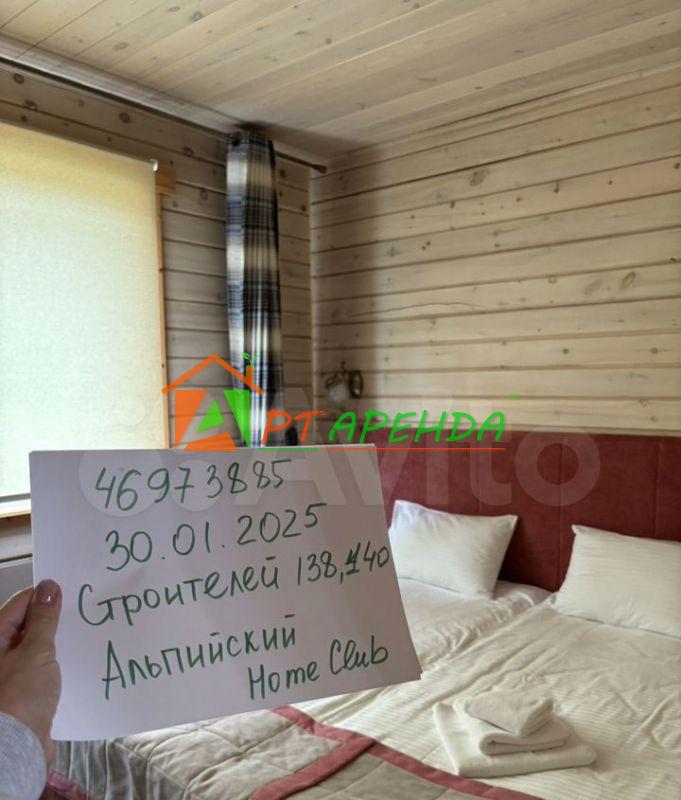 АРТ АРЕНДА
Avito
46973885
30.01.2025
Строителей 138,140
Альпийский
Home Club